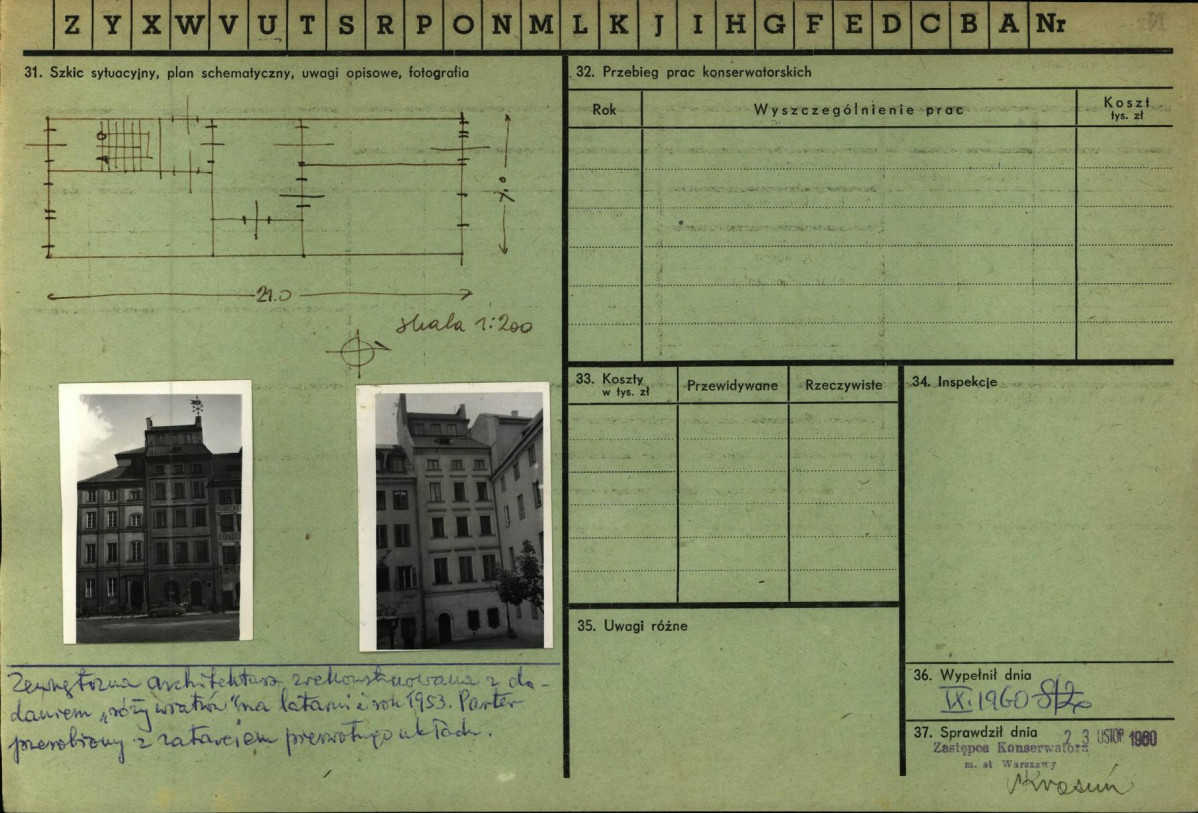 Z Y X W V U T S R P O N M L K J I H G F E D C B A Nr
31. Szkic sytuacyjny, plan schematyczny, uwagi opisowe, fotografia
7.0
21.0
skala 1:200
Zewnętrzna architektura zrekonstruowana z do-
daniem „róży wiatrów" na latarni i rok 1953. Parter
przerobiony z zatarciem pierwotnego układu.
32. Przebieg prac konserwatorskich
Rok
Wyszczególnienie prac
Koszt
tys. zł
33. Koszty
w tys. zł
Przewidywane
Rzeczywiste
34. Inspekcje
35. Uwagi różne
36. Wypełnił dnia
IX. 1960
37. Sprawdził dnia
2 3 LISTOP 1960
Zastępca Konserwatora
m. st Warszawy